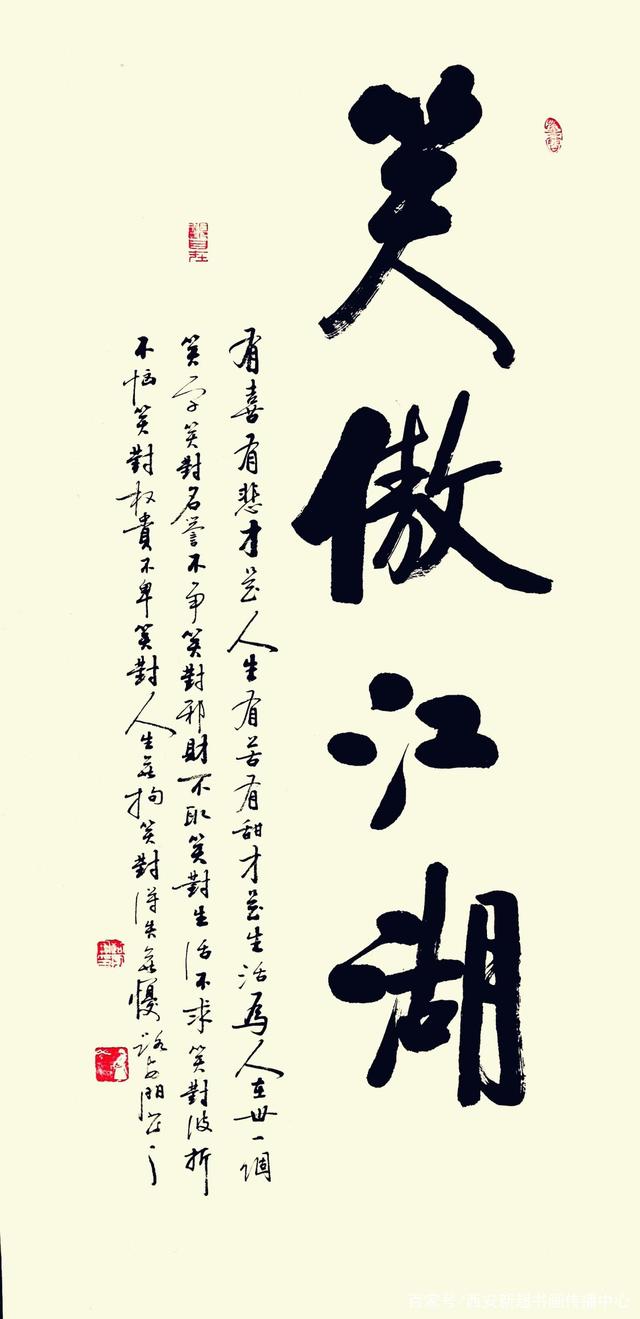 笑傲江湖
有喜有悲才是人生有苦有甜才是生活為人在世一個
笑字笑對名譽不争笑對邪財不取笑對生活不求笑對波折
不恼笑對权貴不卑笑對人生無拘笑對得失無懮
百家号/西安新超书画传播中心